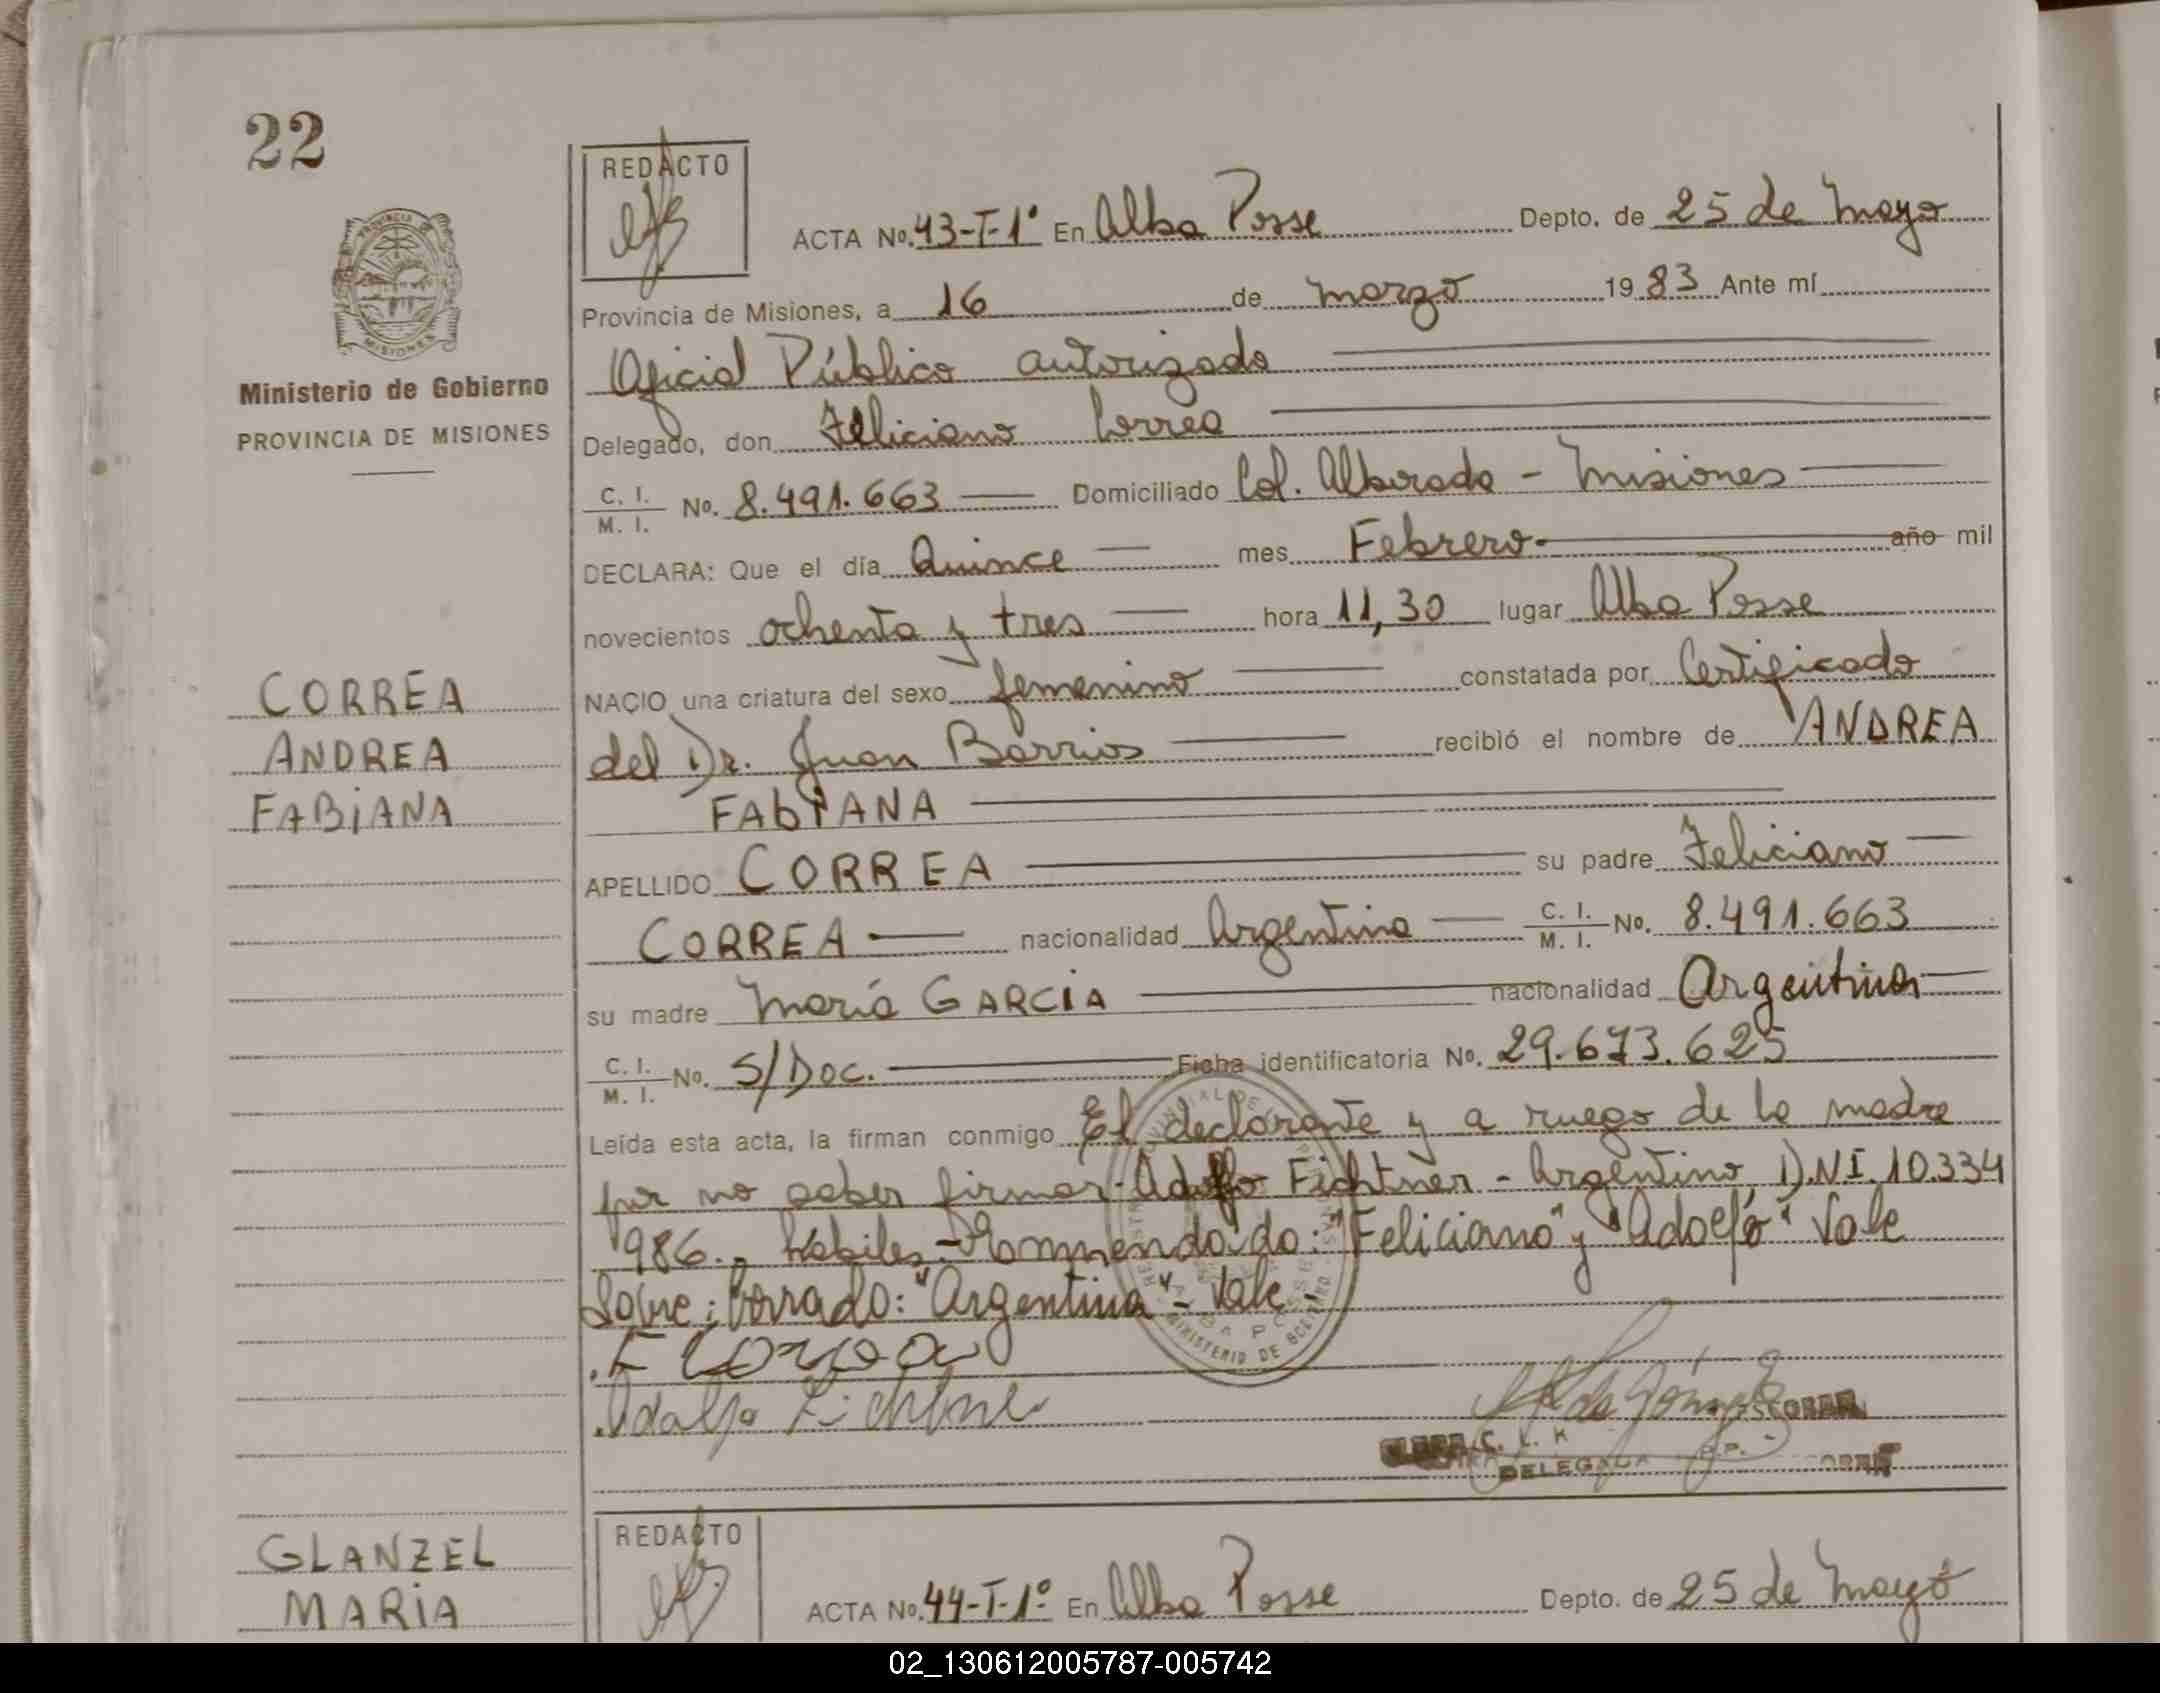 22
REDACTO
ACTA No. 43-T-1° En Alba Posse Depto. de 25 de Mayo
PROVINCIA DE
MISIONES
Provincia de Misiones, a 16 de marzo 1983 Ante mí
Oficial Público autorizado
Ministerio de Gobierno
PROVINCIA DE MISIONES
Delegado, don Feliciano Correa
C. I.
M. I. No. 8.491.663 Domiciliado Col. Alborada - Misiones
DECLARA: Que el día Quince mes Febrero año mil
novecientos ochenta y tres hora 11,30 lugar Alba Posse
CORREA
NACIO una criatura del sexo femenino constatada por Certificado
ANDREA
del Dr. Juan Barrios recibió el nombre de ANDREA
FABiANA
FAbiANA
APELLIDO CORREA su padre Feliciano
CORREA nacionalidad Argentina C. I. M. I. No. 8.491.663
su madre María GARCIA nacionalidad Argentina
C. I. M. I. No. S/Doc. Ficha identificatoria No. 29.673.625
Leída esta acta, la firman conmigo El declarante y a ruego de la madre
por no saber firmar - Adolfo Fichtner - Argentino, D.N.I. 10.334
986.- Habiles - Enmendado: "Feliciano" y "Adolfo" Vale
Sobre: borrado: "Argentina" - Vale.
F Correa
Adolfo Fichtner
DELEGADA
GLANZEL
MARiA
REDACTO
ACTA No. 44-T-1° En Alba Posse Depto. de 25 de Mayo
02_130612005787-005742